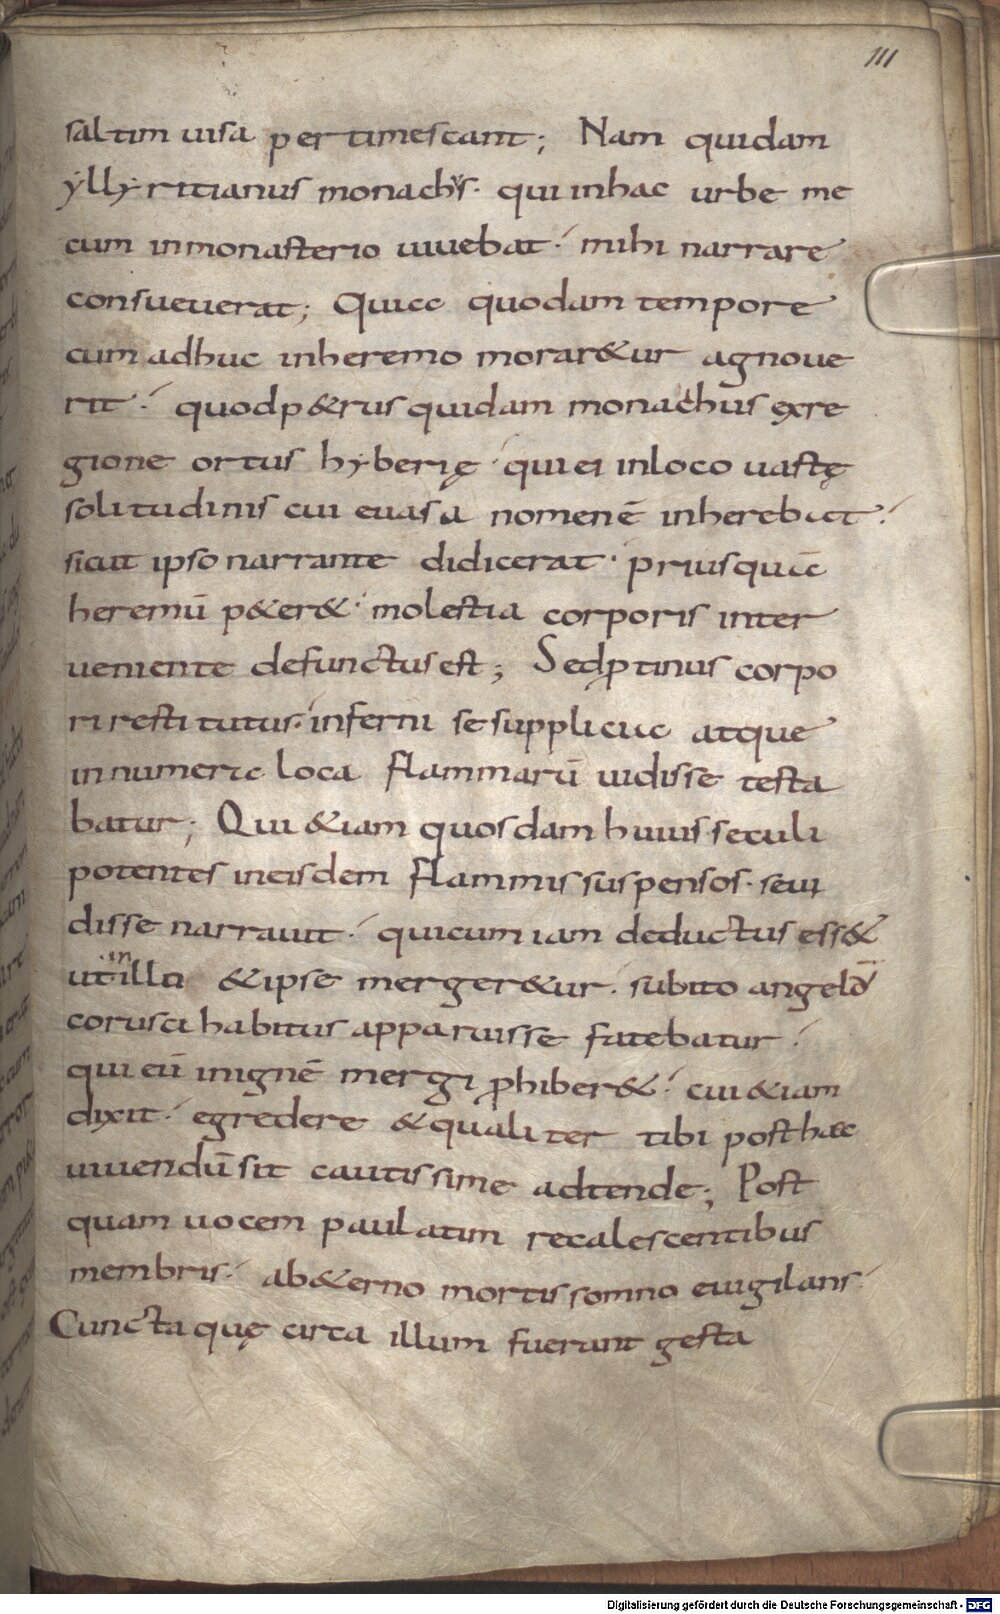 111
saltim uisa pertimescant; Nam quidam
yllyritianus monachus. qui inhac urbe me
cum inmonasterio uiuebat. mihi narrare
consueuerat; Quia quodam tempore
cum adhuc inheremo morar&ur agnoue
rit. quodp&rus quidam monachus exre
gione ortus hyberię. qui ei inloco uastę
solitudinis cui euasa nomenē inherebat.
sicut ipso narrante didicerat. priusquā
heremū p&er&. molestia corporis inter
ueniente defunctus est; Sedꝓtinus corpo
ri restitutus. inferni se supplicia atque
innumera loca flammarū uidisse testa
batur; Qui &iam quosdam huius seculi
potentes ineisdem flammis suspensos. seui
disse narrauit. quicum iam deductus ess&
ut in illa &ipse merger&ur. subito angelū
corusci habitus apparuisse fatebatur.
qui eū inignē mergi ꝓhiber&. cui &iam
dixit. egredere &qualiter tibi posthaec
uiuendū sit cautissime adtende; Post
quam uocem paulatim recalescentibus
membris. ab&erno mortis somno euigilans.
Cuncta quę circa illum fuerunt gesta
Digitalisierung gefördert durch die Deutsche Forschungsgemeinschaft - DFG